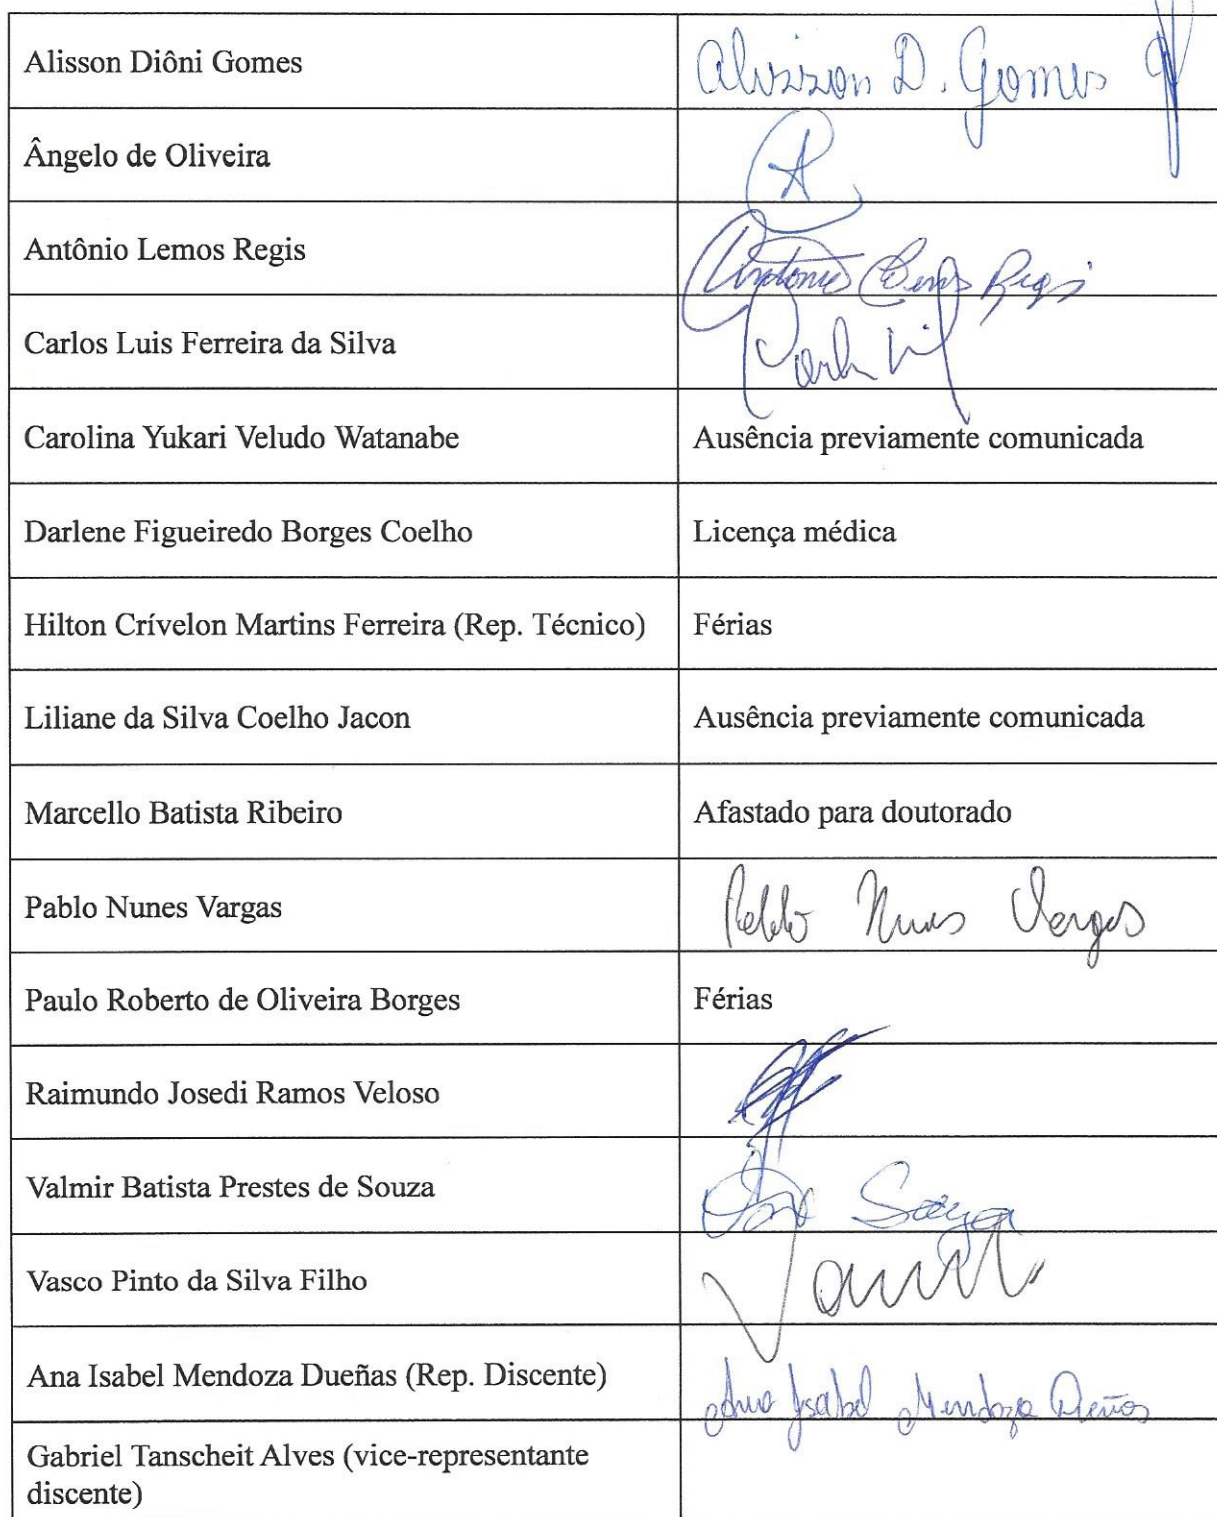 Alisson Diôni Gomes
Alisson D. Gomes
Ângelo de Oliveira
A
Antônio Lemos Regis
Antonio Lemos Regis
Carlos Luis Ferreira da Silva
Carolina Yukari Veludo Watanabe
Ausência previamente comunicada
Darlene Figueiredo Borges Coelho
Licença médica
Hilton Crívelon Martins Ferreira (Rep. Técnico)
Férias
Liliane da Silva Coelho Jacon
Ausência previamente comunicada
Marcello Batista Ribeiro
Afastado para doutorado
Pablo Nunes Vargas
Pablo Nunes Vargas
Paulo Roberto de Oliveira Borges
Férias
Raimundo Josedi Ramos Veloso
Valmir Batista Prestes de Souza
Souza
Vasco Pinto da Silva Filho
Ana Isabel Mendoza Dueñas (Rep. Discente)
Ana Isabel Mendoza Dueñas
Gabriel Tanscheit Alves (vice-representante
discente)